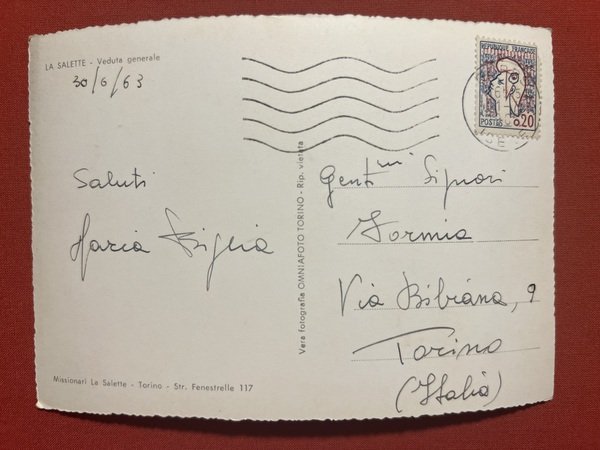 LA SALETTE - Veduta generale
30/6/63
Saluti
Maria
Missionari La Salette - Torino - Str. Fenestrelle 117
Vera fotografia OMNIAFOTO TORINO - Rip. vietata
REPUBLIQUE FRANÇAISE
POSTES 0,20
Gent.mi Signori
Formia
Via Bibiana, 9
Torino
(Italia)